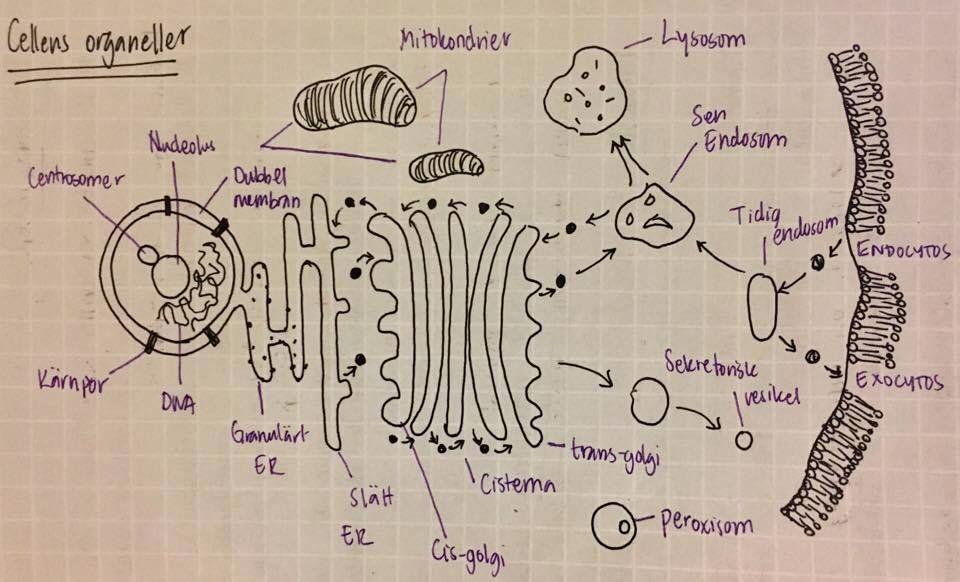 Cellens organeller
Mitokondrier
Lysosom
Sen
Endosom
Nucleolus
Centrosomer
Dubbel
membran
Tidig
endosom
ENDOCYTOS
Kärnpor
DNA
Granulärt
ER
Slätt
ER
Cis-golgi
Cisterna
trans-golgi
Sekretorisk
vesikel
EXOCYTOS
peroxisom